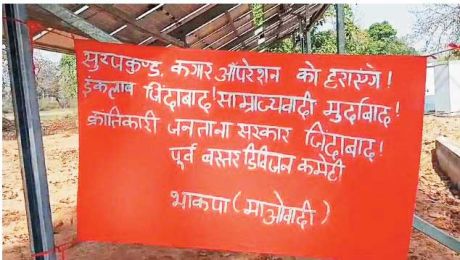 सुरजकुण्ड, कगार ऑपरेशन को हरायेंगे!
इंकलाब जिंदाबाद! साम्राज्यवादी मुर्दाबाद!
क्रांतिकारी जनताना सरकार जिंदाबाद!
पूर्व बस्तर डिविजन कमेटी
भाकपा (माओवादी)